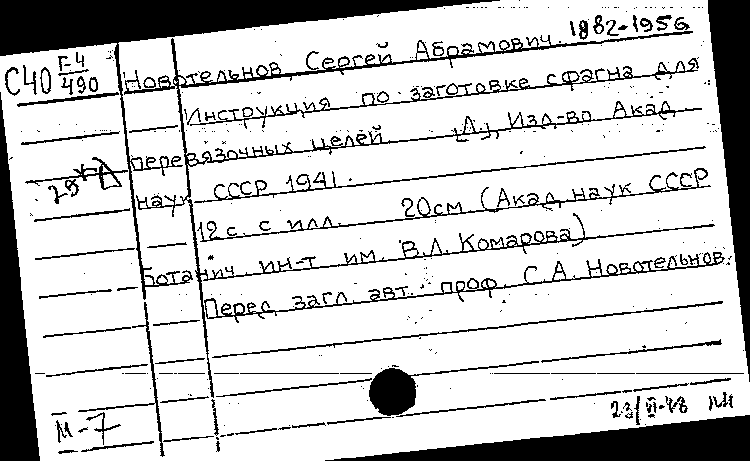 С40 F-4/490
Новотельнов, Сергей Абрамович. 1882-1956
Инструкция по заготовке сфагна для
перевязочных целей. [Л.], Изд-во Акад.
наук СССР, 1941.
12 с. с илл. 20см (Акад. наук СССР
Ботанич. ин-т им. В.Л. Комарова)
Перед загл. авт.: проф. С.А. Новотельнов.
М-7
23/VI-48